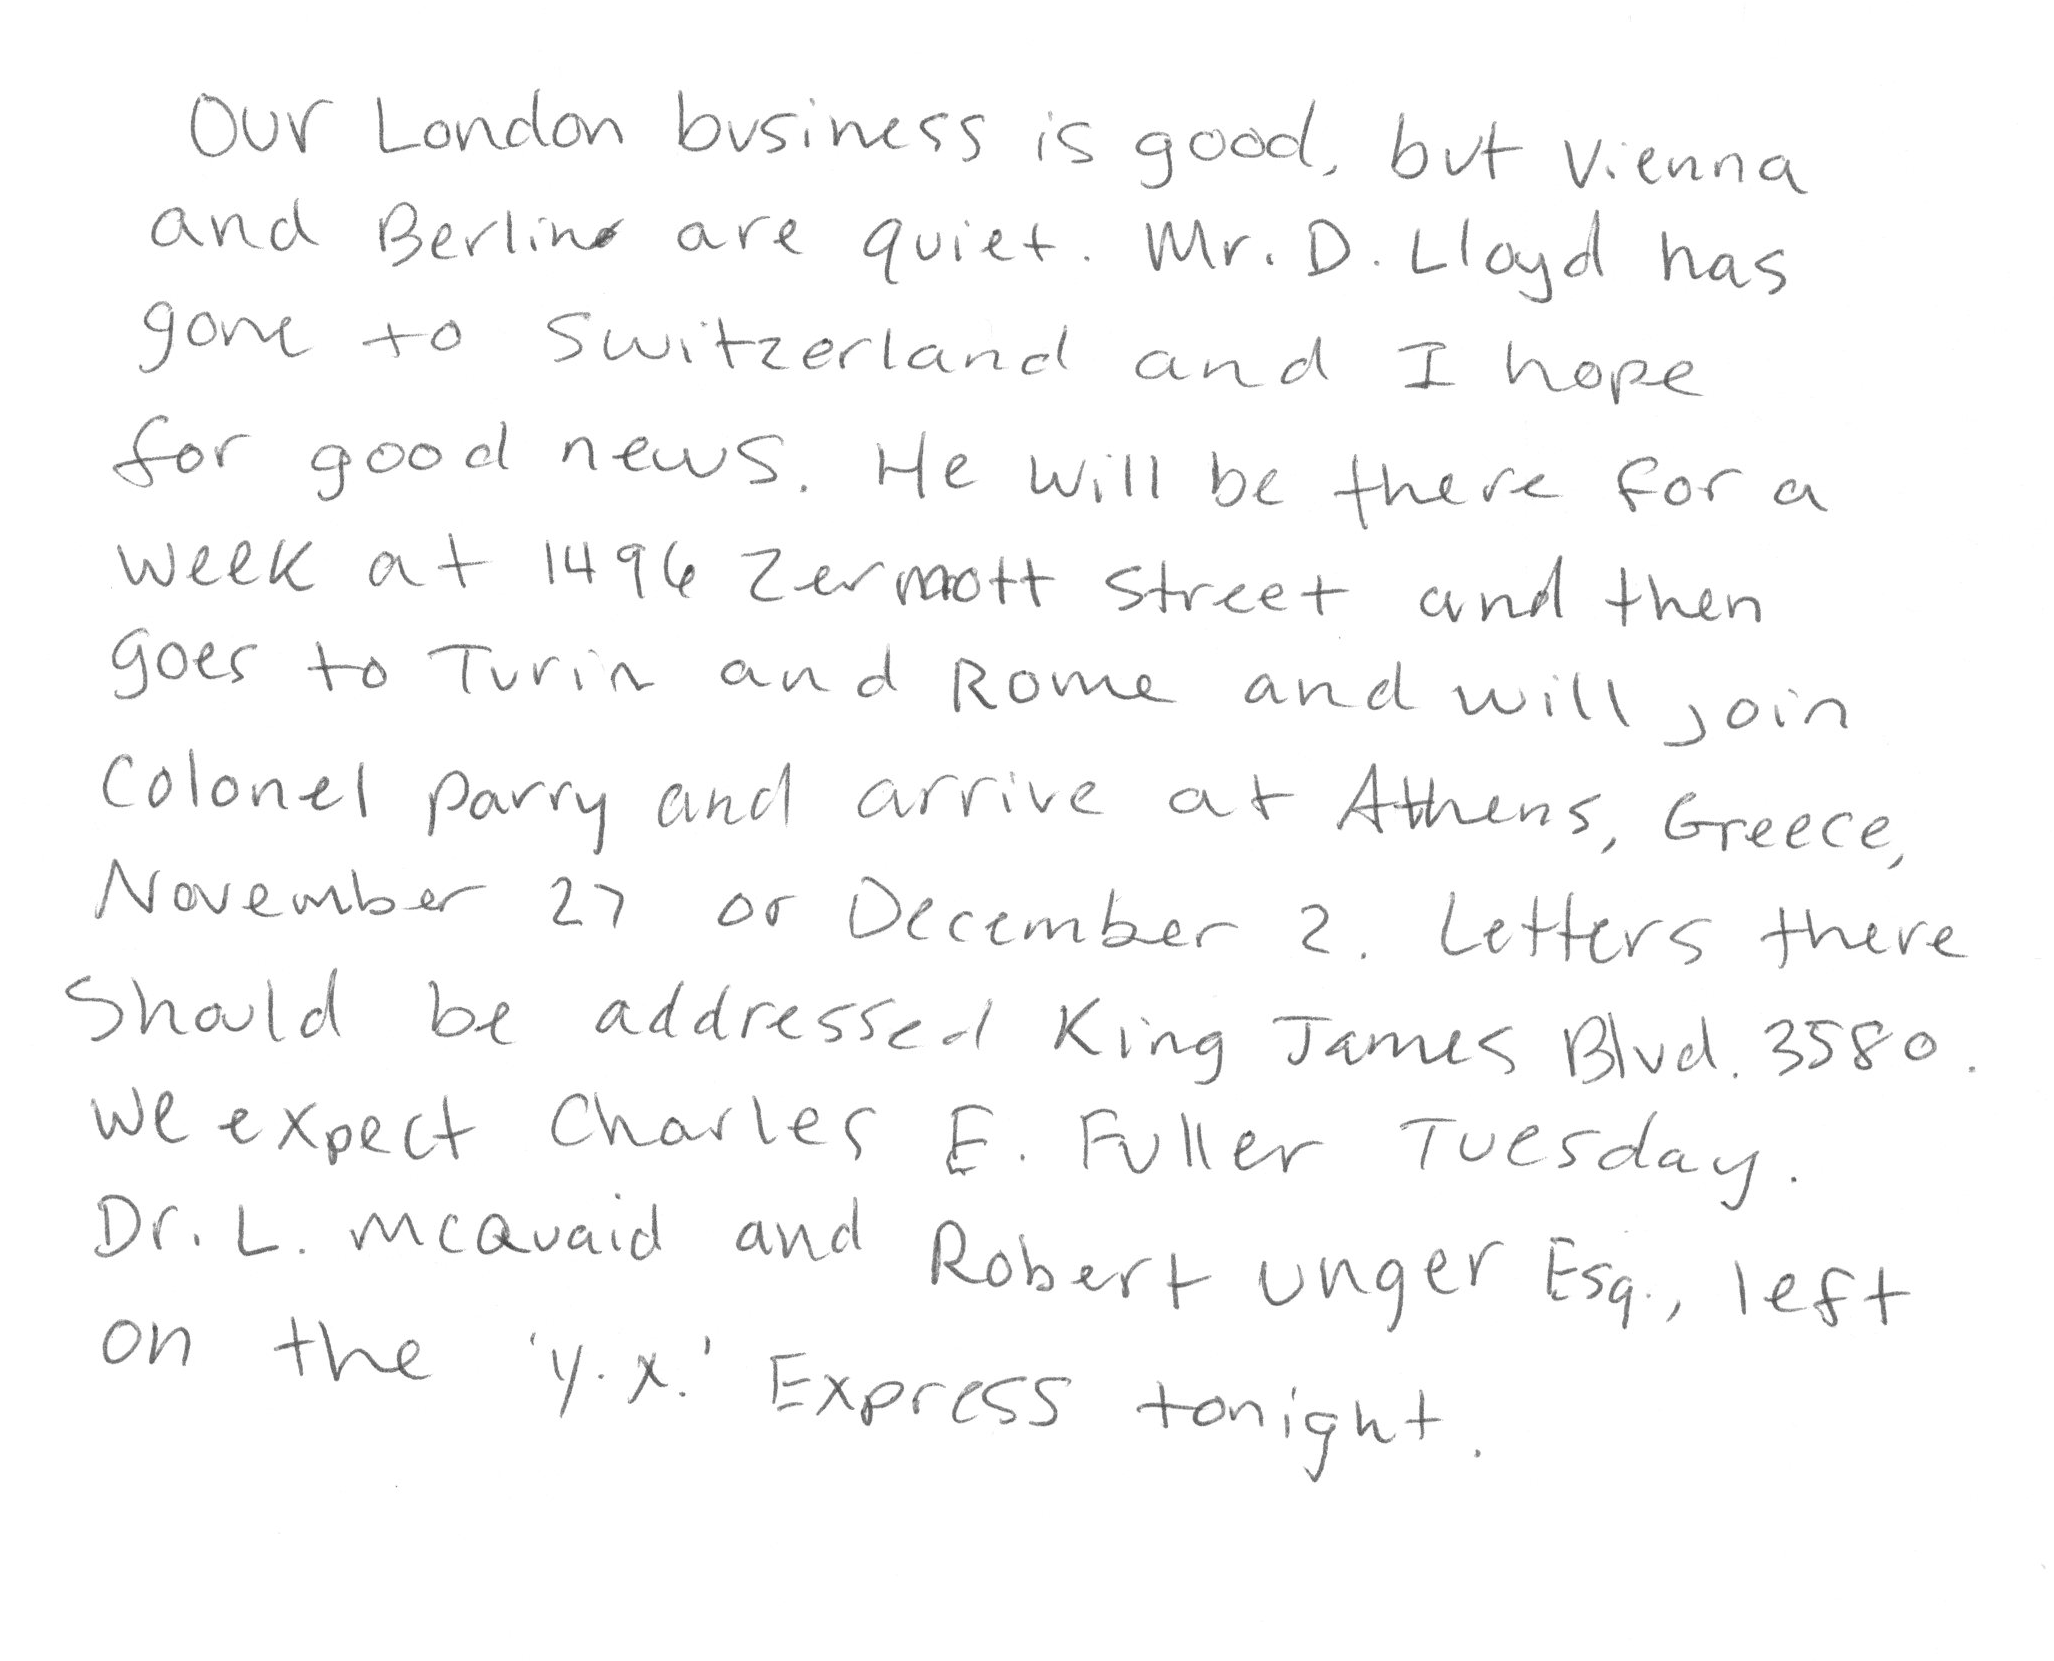 Our London business is good, but Vienna
and Berlin are quiet. Mr. D. Lloyd has
gone to Switzerland and I hope
for good news. He will be there for a
week at 1496 Zermott Street and then
goes to Turin and Rome and will join
Colonel Parry and arrive at Athens, Greece,
November 27 or December 2. Letters there
Should be addressed King James Blvd. 3580.
We expect Charles E. Fuller Tuesday.
Dr. L. McQuaid and Robert Unger Esq., left
on the 'Y.X.' Express tonight.